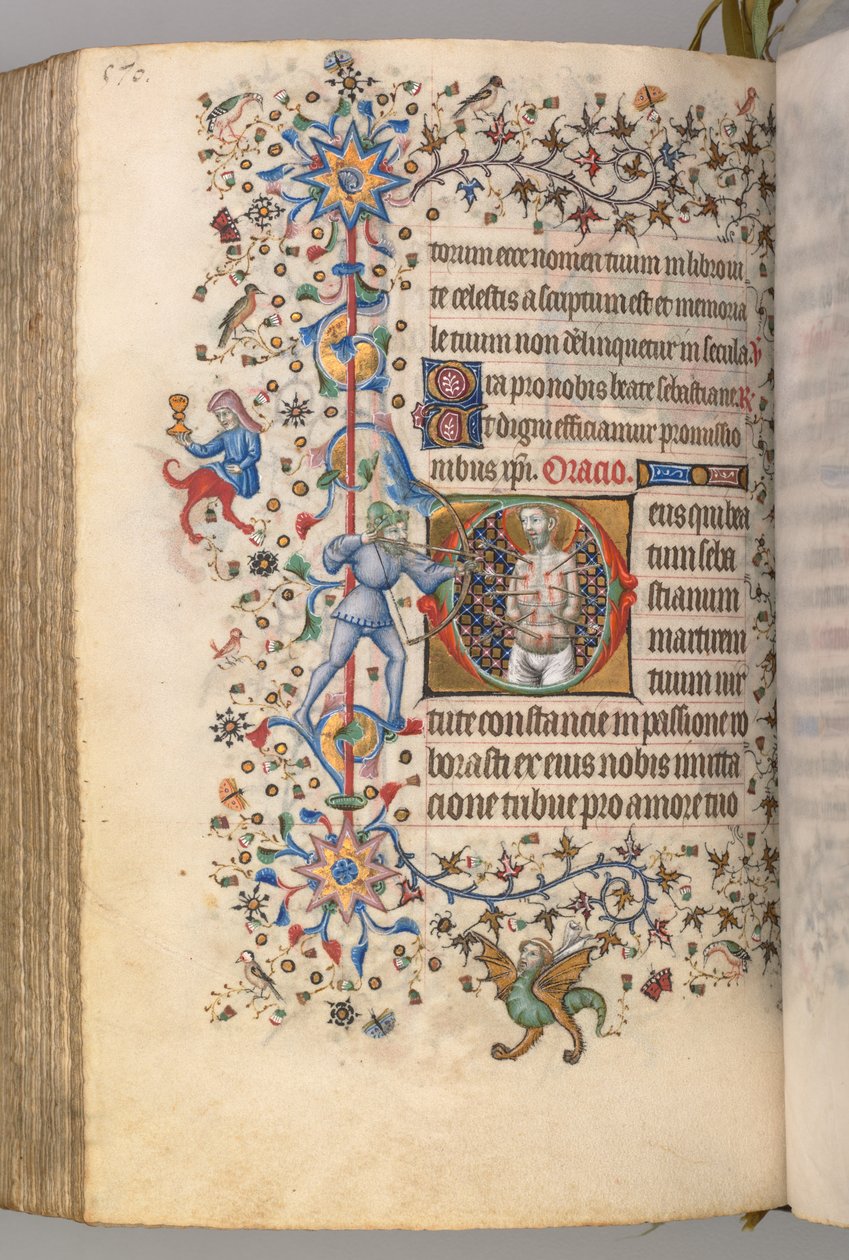 570.
torum ecce nomen tuum in libro ui
te celestis ascriptum est et memoria
le tuum non delinquetur in secula. V
Ora pro nobis beate sebastiane. R
Ut digni efficiamur promissio
nibus xpi. Oracio.
Deus qui bea
tum seba
stianum
martirem
tuum uir
tute constancie in passione ro
borasti ex eius nobis imita
cione tribue pro amore tuo